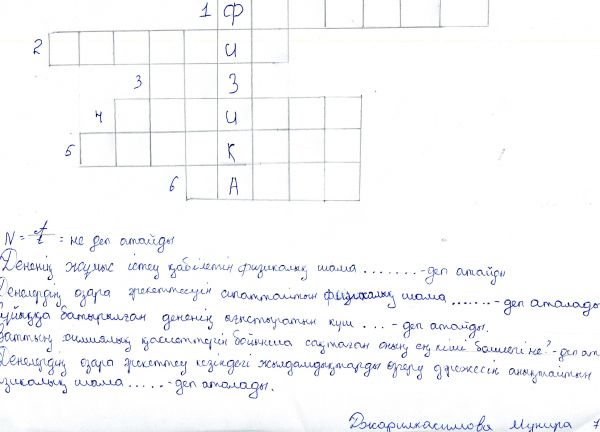 1 Ф
2 И
3 З
4 И
5 Қ
6 А
N = A/t = не деп атайды
Дененің жұмыс істеу қабілетін физикалық шама ........ - деп атайды
Денелердің өзара әрекеттесуін сипаттайтын физикалық шама ....... - деп аталады
ұйыққа батырылған дененің ығыстыратын күш ... - деп атайды.
заттың химиялық қасиеттерін бойынша сақтаған оның ең кіші бөлшегі не? - деп ат
Денелердің өзара әрекеттеу кезіндегі жылдамдықтарды өзгеру дәрежесін анықтайтын
зикалық шама ...... - деп аталады.
Джарилкасимова Мунира 7